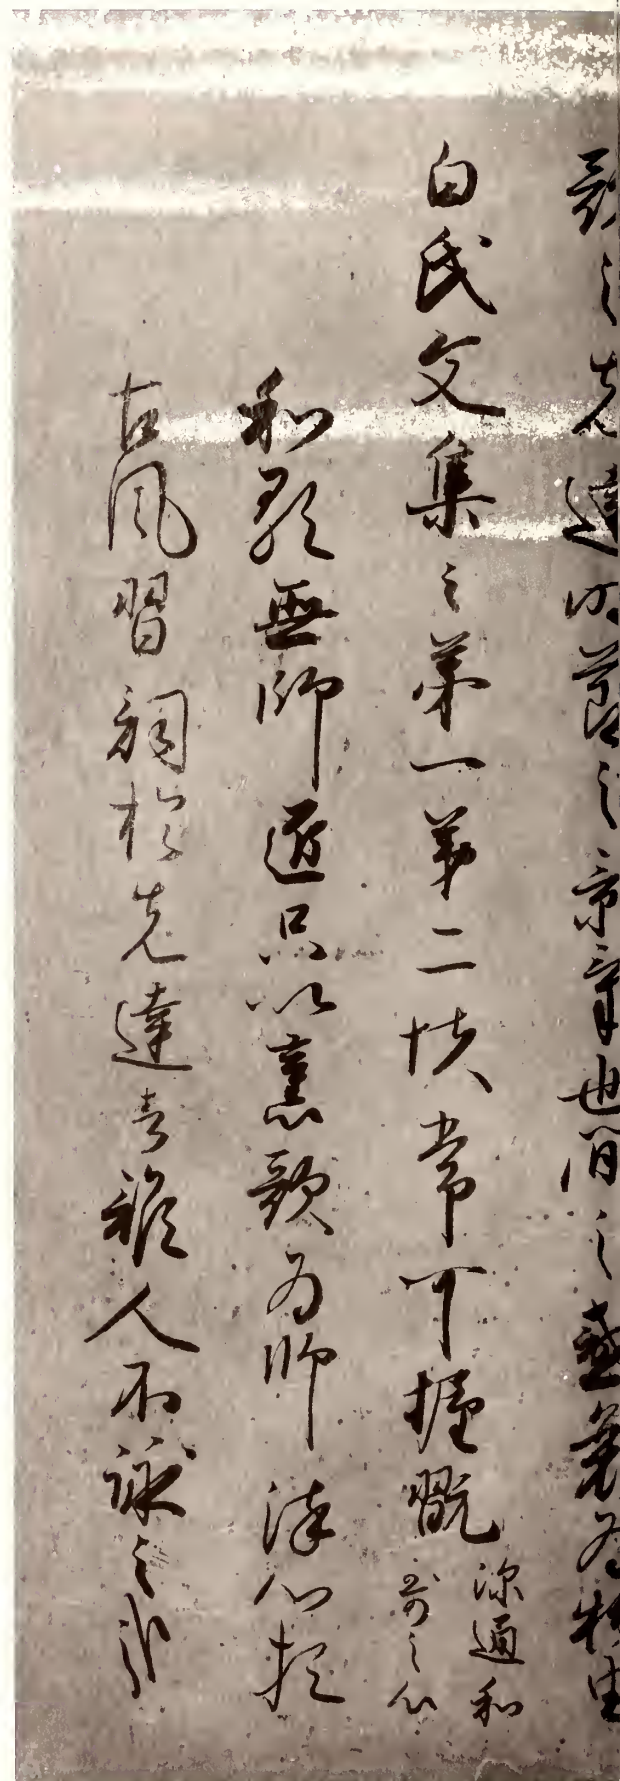 歌之先達時節之景氣世間之盛衰為知物由
白氏文集之第一第二帙常可握翫
深通和
哥之心
和歌無師匠只以舊歌為師染心於
古風習詞於先達者誰人不詠之哉